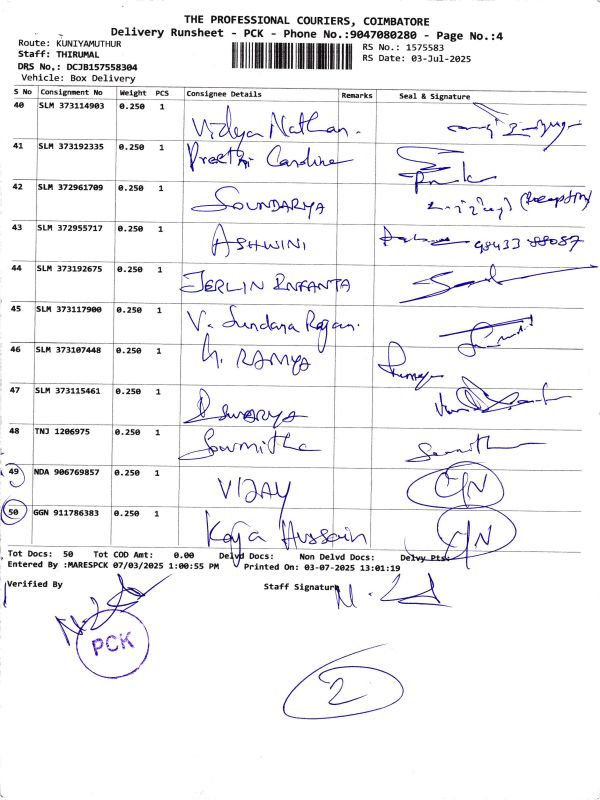 THE PROFESSIONAL COURIERS, COIMBATORE
Delivery Runsheet - PCK - Phone No.:9047080280 - Page No.:4
Route: KUNIYAMUTHUR
RS No.: 1575583
Staff: THIRUMAL
RS Date: 03-Jul-2025
DRS No,: DCJB157558304
Vehicle: Box Delivery
S No Consignment No Weight PCS Consignee Details Remarks Seal & Signature
40 SLM 373114903 0.250 1 Vidya Nathan.
41 SLM 373192335 0.250 1 Preethi Caroline
42 SLM 372961709 0.250 1 SOUNDARYA (Reception)
43 SLM 372955717 0.250 1 ASHWINI 98433 88087
44 SLM 373192675 0.250 1 JERLIN INFANTA
45 SLM 373117900 0.250 1 V. Sundara Rajan.
46 SLM 373107448 0.250 1 RAMYA
47 SLM 373115461 0.250 1 ISWARYA
48 TNJ 1206975 0.250 1 Sowmitha
49 NDA 906769857 0.250 1 VIJAY C/N
50 GGN 911786383 0.250 1 Kaja Hussain C/N
Tot Docs: 50 Tot COD Amt: 0.00 Delvd Docs: Non Delvd Docs: Delvy Pts:
Entered By :MARESPCK 07/03/2025 1:00:55 PM Printed On: 03-07-2025 13:01:19
Verified By Staff Signature
PCK
2